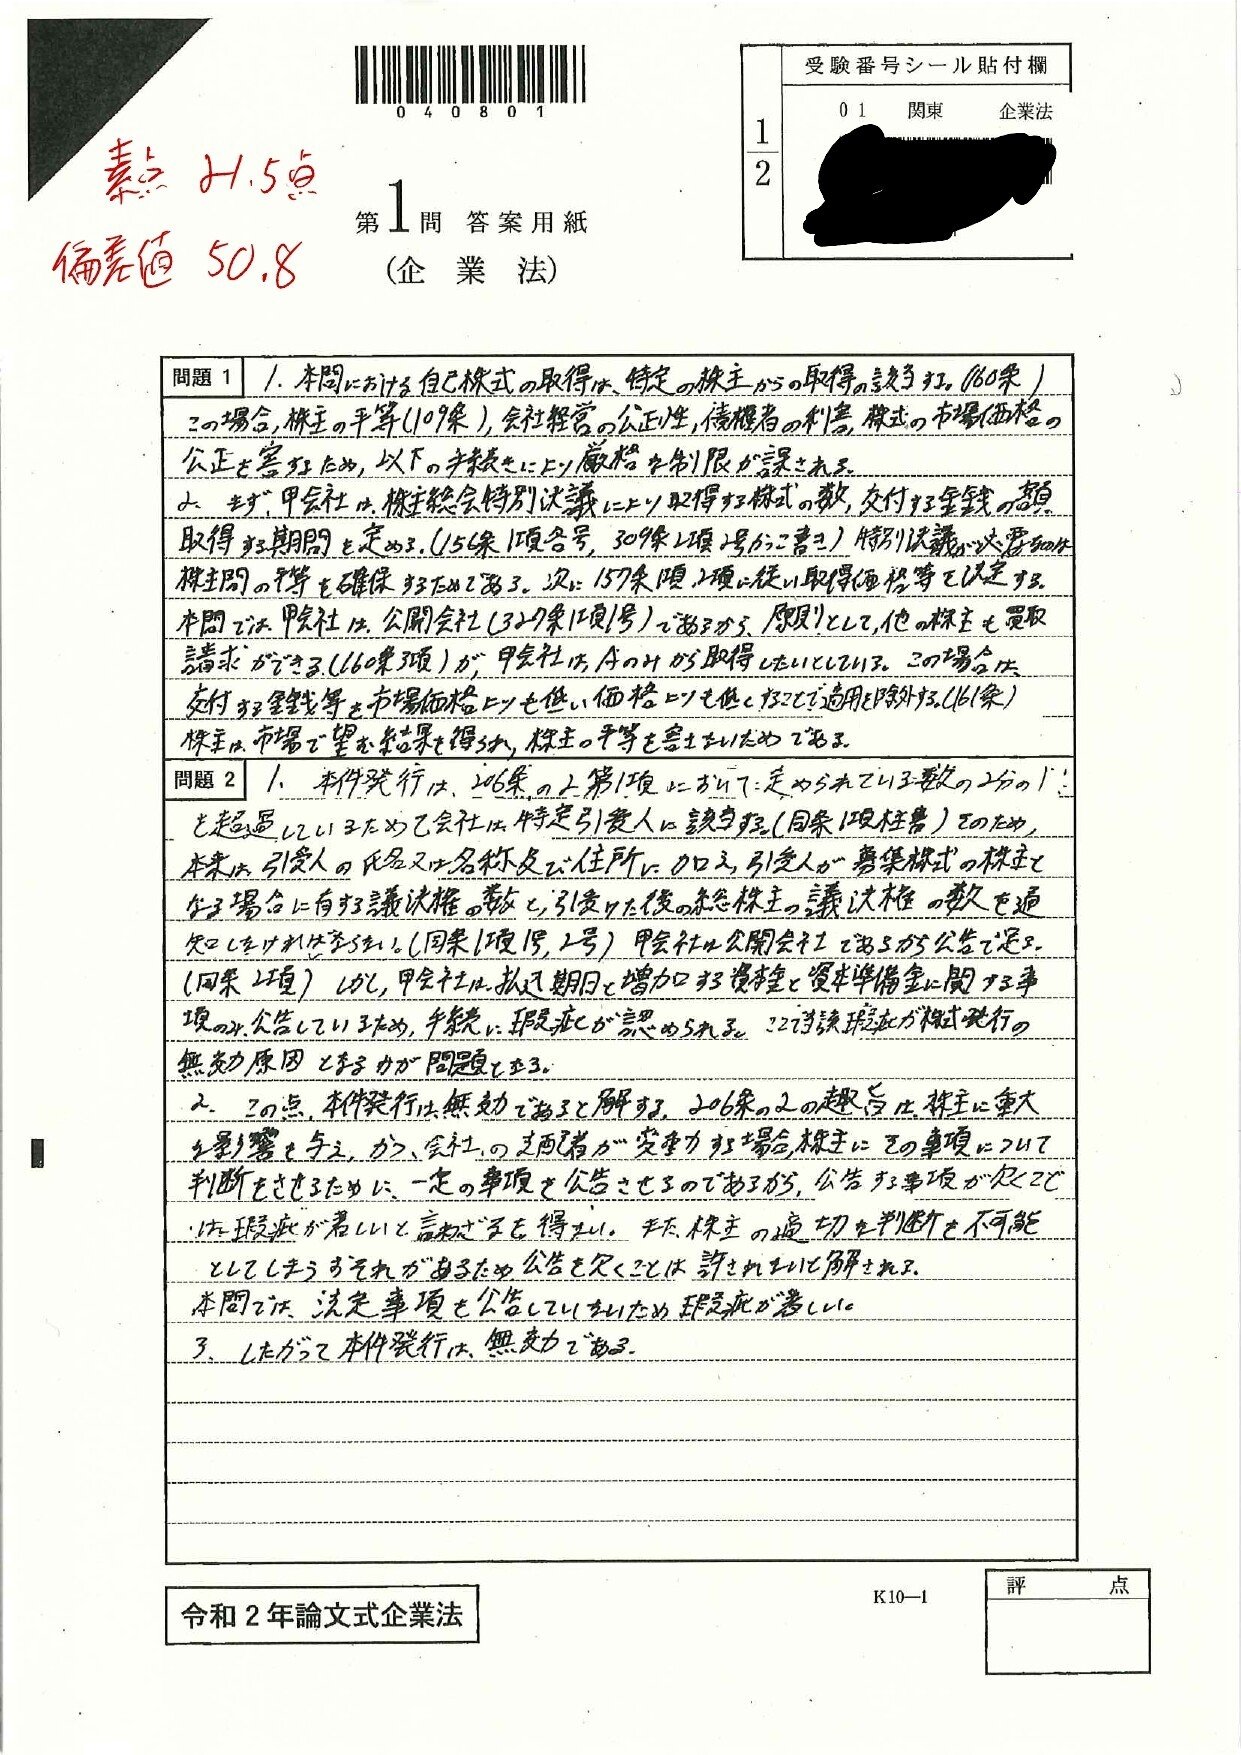 040801
受験番号シール貼付欄
01 関東 企業法
1
2
素点 21.5点
偏差値 50.8
第1問 答案用紙
(企業法)
問題1 1. 本問における自己株式の取得は、特定の株主からの取得の該当する。(160条)
この場合,株主の平等(109条),会社経営の公正性,債権者の利害,株式の市場価格の
公正を害するため,以下の手続きにより厳格な制限が課される。
2. まず、甲会社は、株主総会特別決議により取得する株式の数,交付する金銭の額
取得する期間を定める。(156条1項各号, 309条2項2号かっこ書き) 特別決議が必要なのは
株主間の平等を確保するためである。次に157条1項,2項に従い取得価格等を決定する。
本問では、甲会社は、公開会社(327条1項1号)であるから、原則として,他の株主も買取
請求ができる。(160条3項)が,甲会社は,Aのみから取得したいとしている。この場合は、
交付する金銭等を市場価格よりも低い価格よりも低くすることで適用を除外する。(161条)
株主は、市場で望む結果を得られ,株主の平等を害さないためである。
問題2 1. 本件発行は、206条の2第1項において定められている数の2分の1
を超過しているため乙会社は、特定引受人に該当する。(同条1項柱書) そのため,
本来は、引受人の氏名又は名称及び住所に加え,引受人が募集株式の株主と
なる場合に有する議決権の数と,引受けた後の総株主の議決権の数を通
知しなければならない。(同条1項1号,2号) 甲会社は公開会社であるから公告で足る。
(同条2項) しかし,甲会社は、払込期日と増加する資本金と資本準備金に関する事
項のみ、公告しているため,手続に瑕疵が認められる。ここで当該瑕疵が株式発行の
無効原因となるかが問題となる。
2. この点,本件発行は、無効であると解する。206条の2の趣旨は、株主に重大
な影響を与え、かつ、会社の支配者が変動する場合,株主にその事項について
判断をさせるために、一定の事項を公告させるのであるから,公告する事項が欠くこと
は、瑕疵が著しいと言わざるを得ない。また、株主の適切な判断を不可能
としてしまうおそれがあるため,公告を欠くことは許されないと解される。
本問では、法定事項を公告していないため瑕疵が著しい。
3. したがって本件発行は、無効である。
令和2年論文式企業法
K10—1
評 点